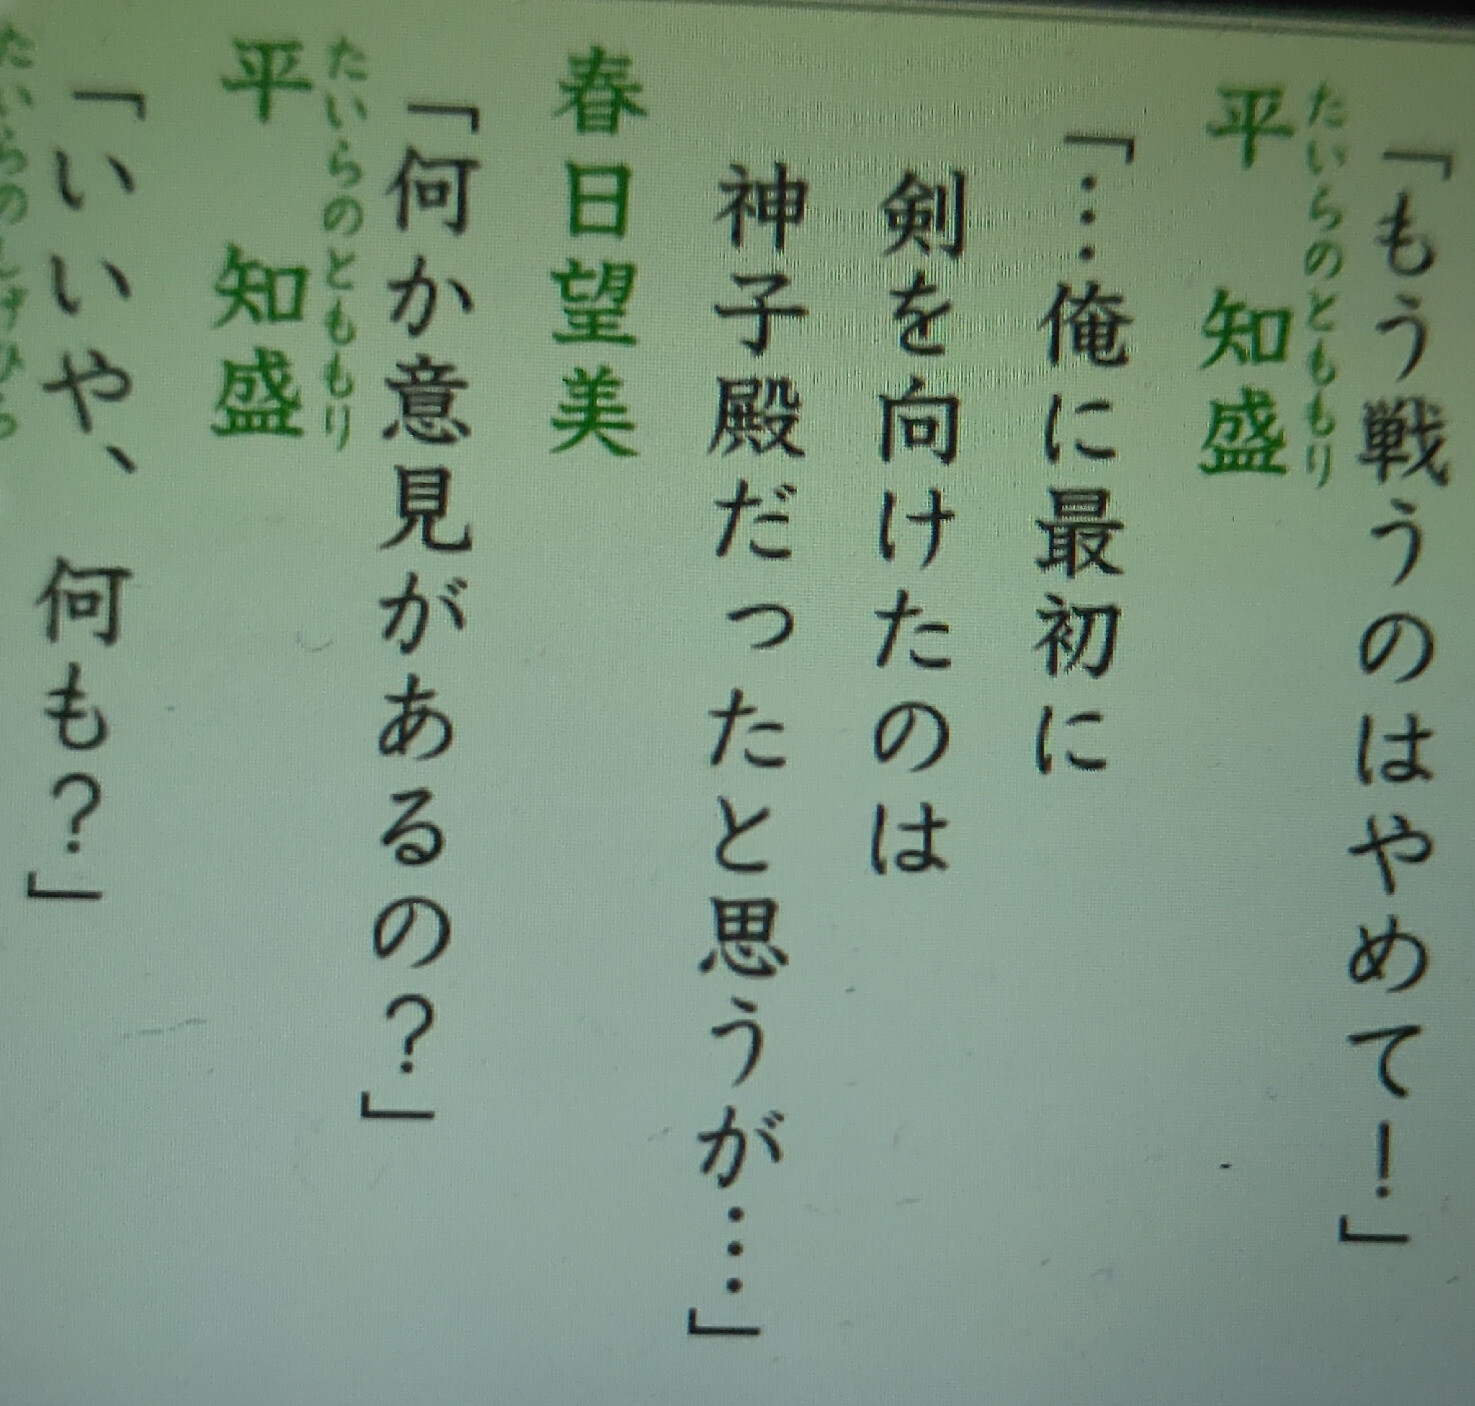 「もう戦うのはやめて！」
たいらのとももり
平　知盛
「…俺に最初に
剣を向けたのは
神子殿だったと思うが…」
春日望美
「何か意見があるの？」
たいらのとももり
平　知盛
「いいや、何も？」
たいらのしげひら